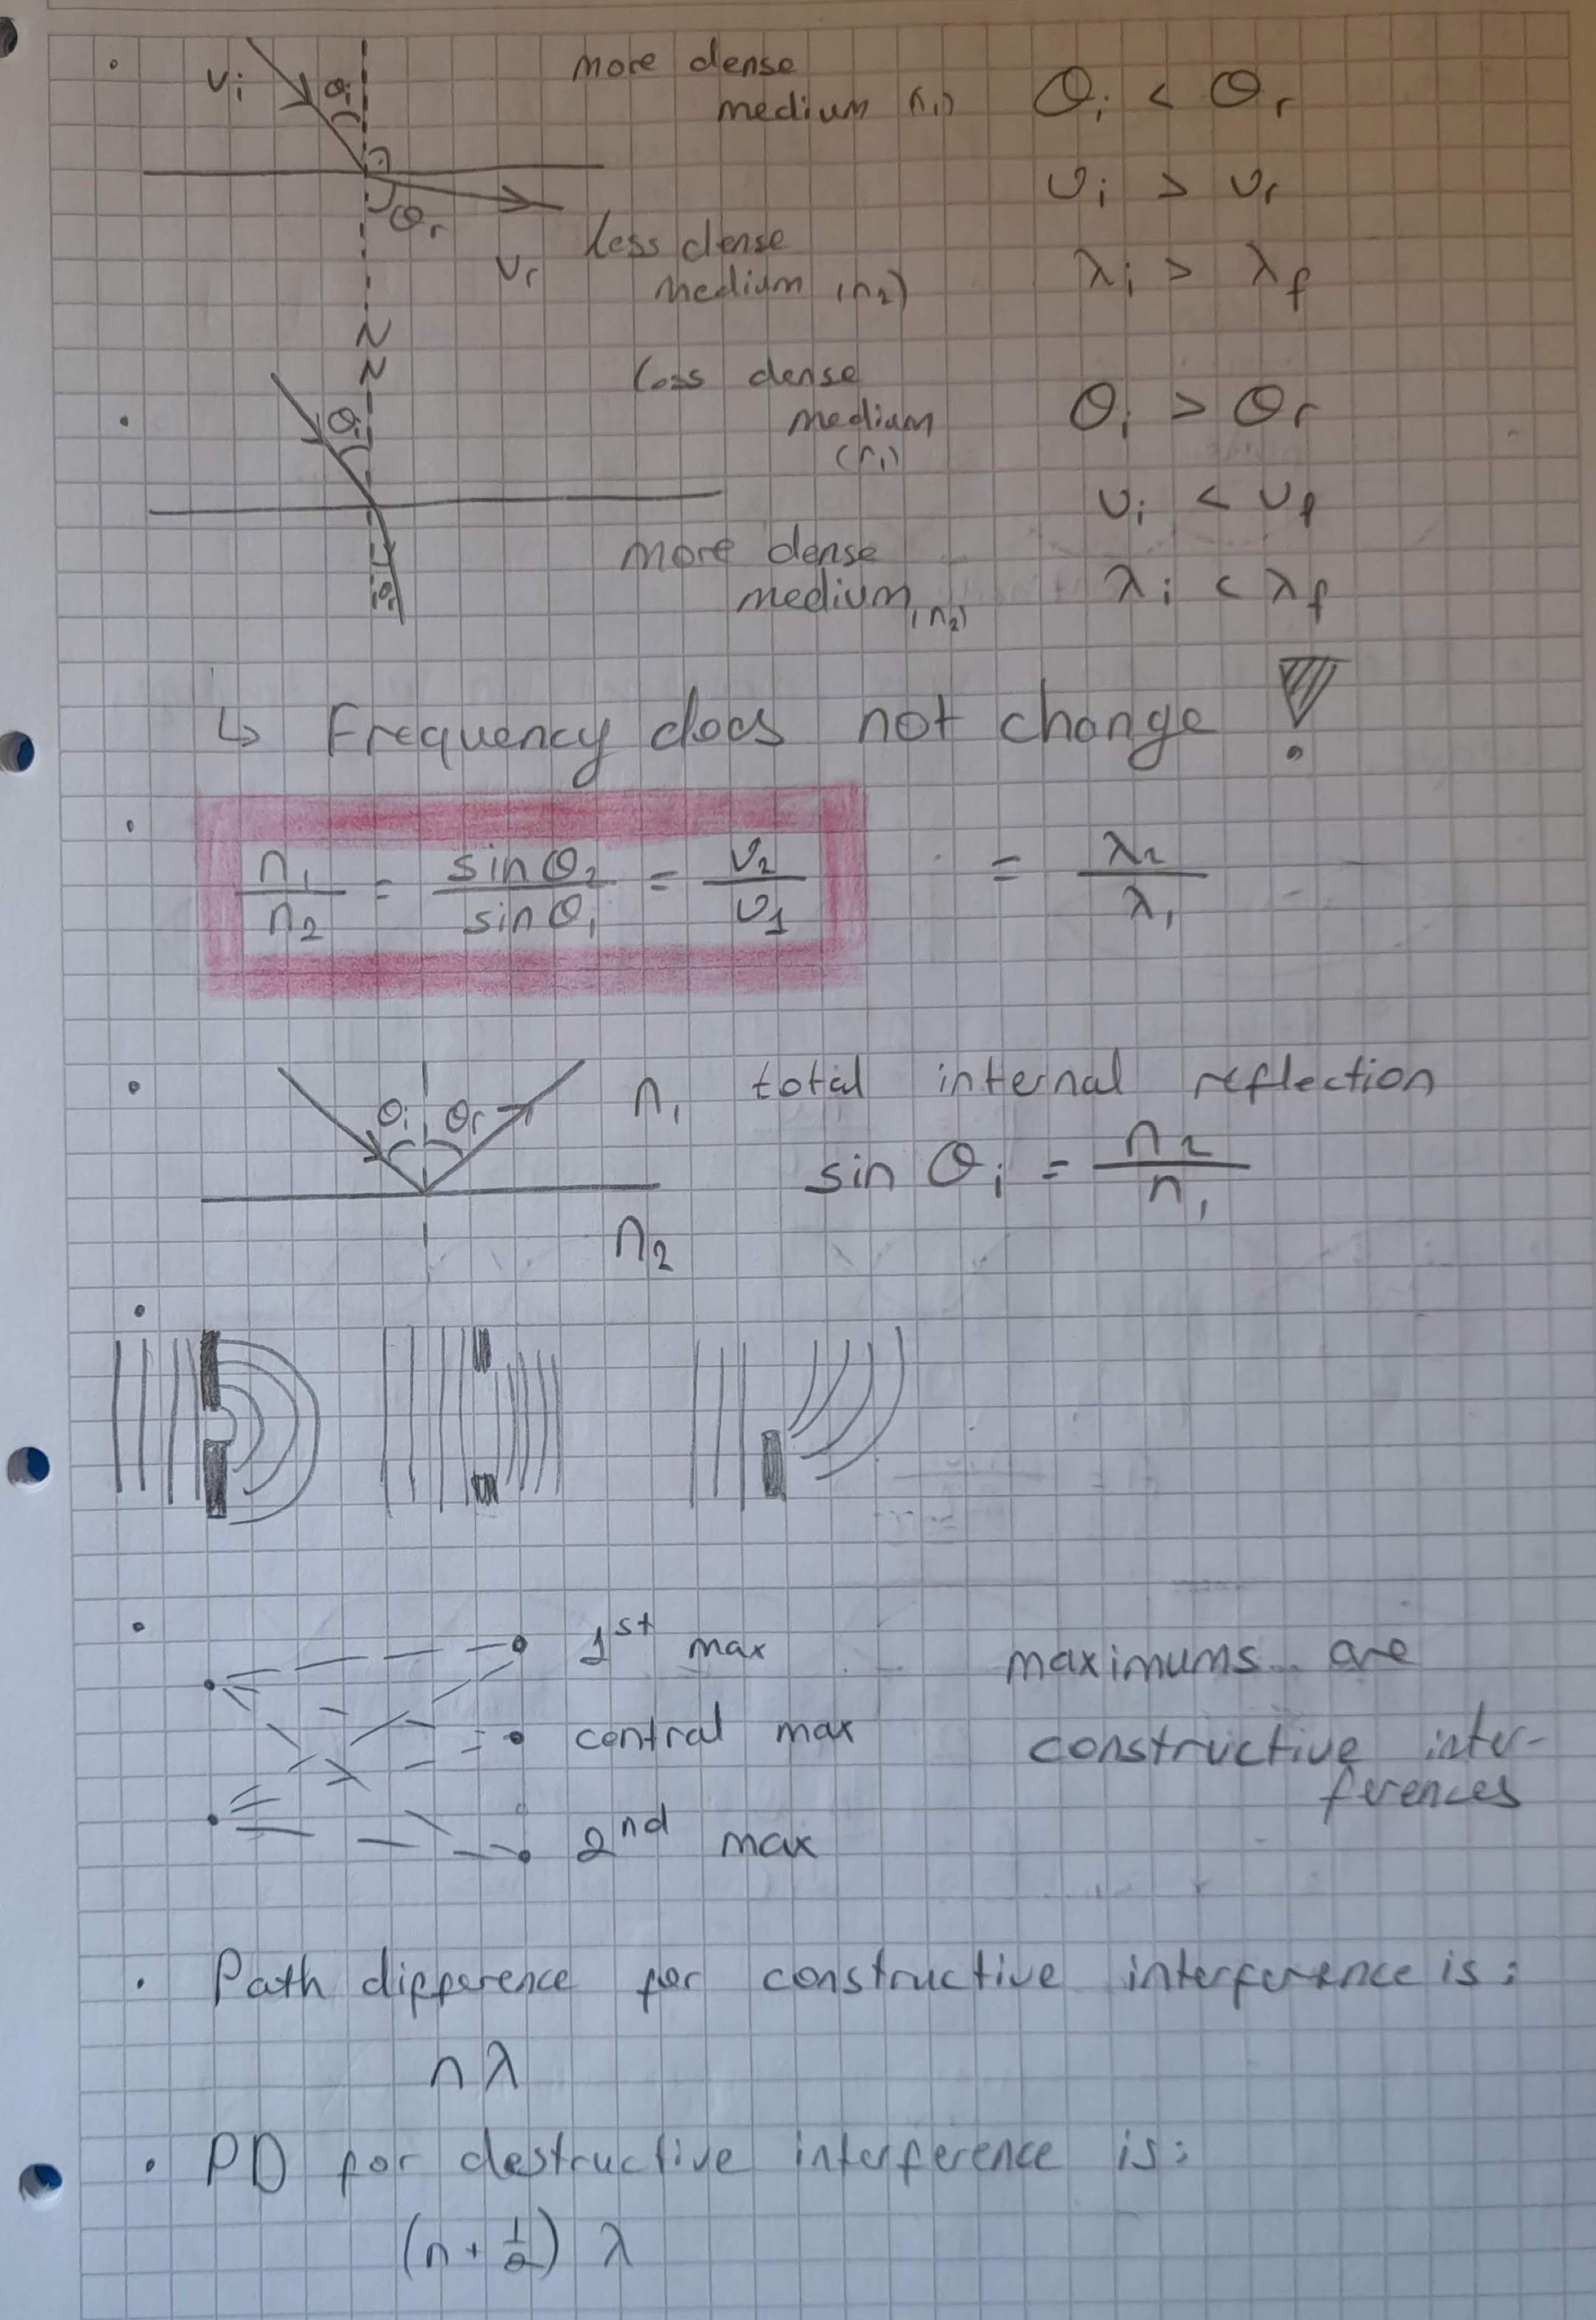 more dense
medium (n₁)
θi < θr
vi
θi
vi > vr
θr
less dense
vr
medium (n₂)
λi > λf
less dense
medium
(n₁)
θi > θr
θi
vi < vf
more dense
medium (n₂)
θr
λi < λf
↳ Frequency does not change !
n₁/n₂ = sinθ₂/sinθ₁ = v₂/v₁ = λ₂/λ₁
total internal reflection
θi θr n₁
sin θi = n₂/n₁
n₂
1st max
maximums are
central max
constructive inter-
ferences
2nd max
• Path difference for constructive interference is:
nλ
• PD for destructive interference is:
(n + 1/2) λ